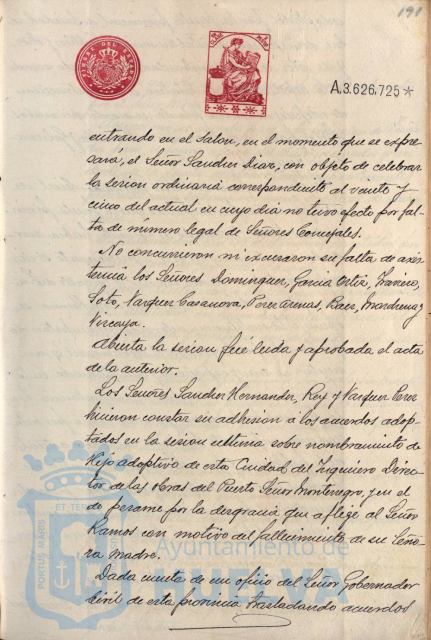 191
TIMBRE DEL ESTADO
A.3.626.725*
entrando en el Salon, en el momento que se expre
sará, el Señor Sanchez Diaz, con objeto de celebrar
la sesion ordinaria correspondiente al veinte y
cinco del actual en cuyo dia no tuvo efecto por fal-
ta de número legal de Señores Concejales.
No concurrieron ni excusaron su falta de asis
tencia los Señores Dominguez, Garcia Ortiz,
Soto, Vazquez Casanova, Perez Arenas, Baez, y
Vizcaya.
Abierta la sesion fué leida y aprobada el acta
de la anterior.
Los Señores Sanchez Hernandez, Rey y Vazquez Perez
hicieron constar su adhesion á los acuerdos adop-
tados en la sesion ultima sobre nombramiento de
Hijo adoptivo de esta Ciudad del Ingeniero Direc
tor de las obras del Puerto Señor Montenegro, y en el
de pesame por la desgracia que aflige al Señor
Ramos con motivo del fallecimiento de su Seño
ra madre.
Dada cuenta de un oficio del Señor Gobernador
Civil de esta provincia trasladando acuerdos
PORTUS MARIS ET TERRÆ
Ayuntamiento de
HUELVA